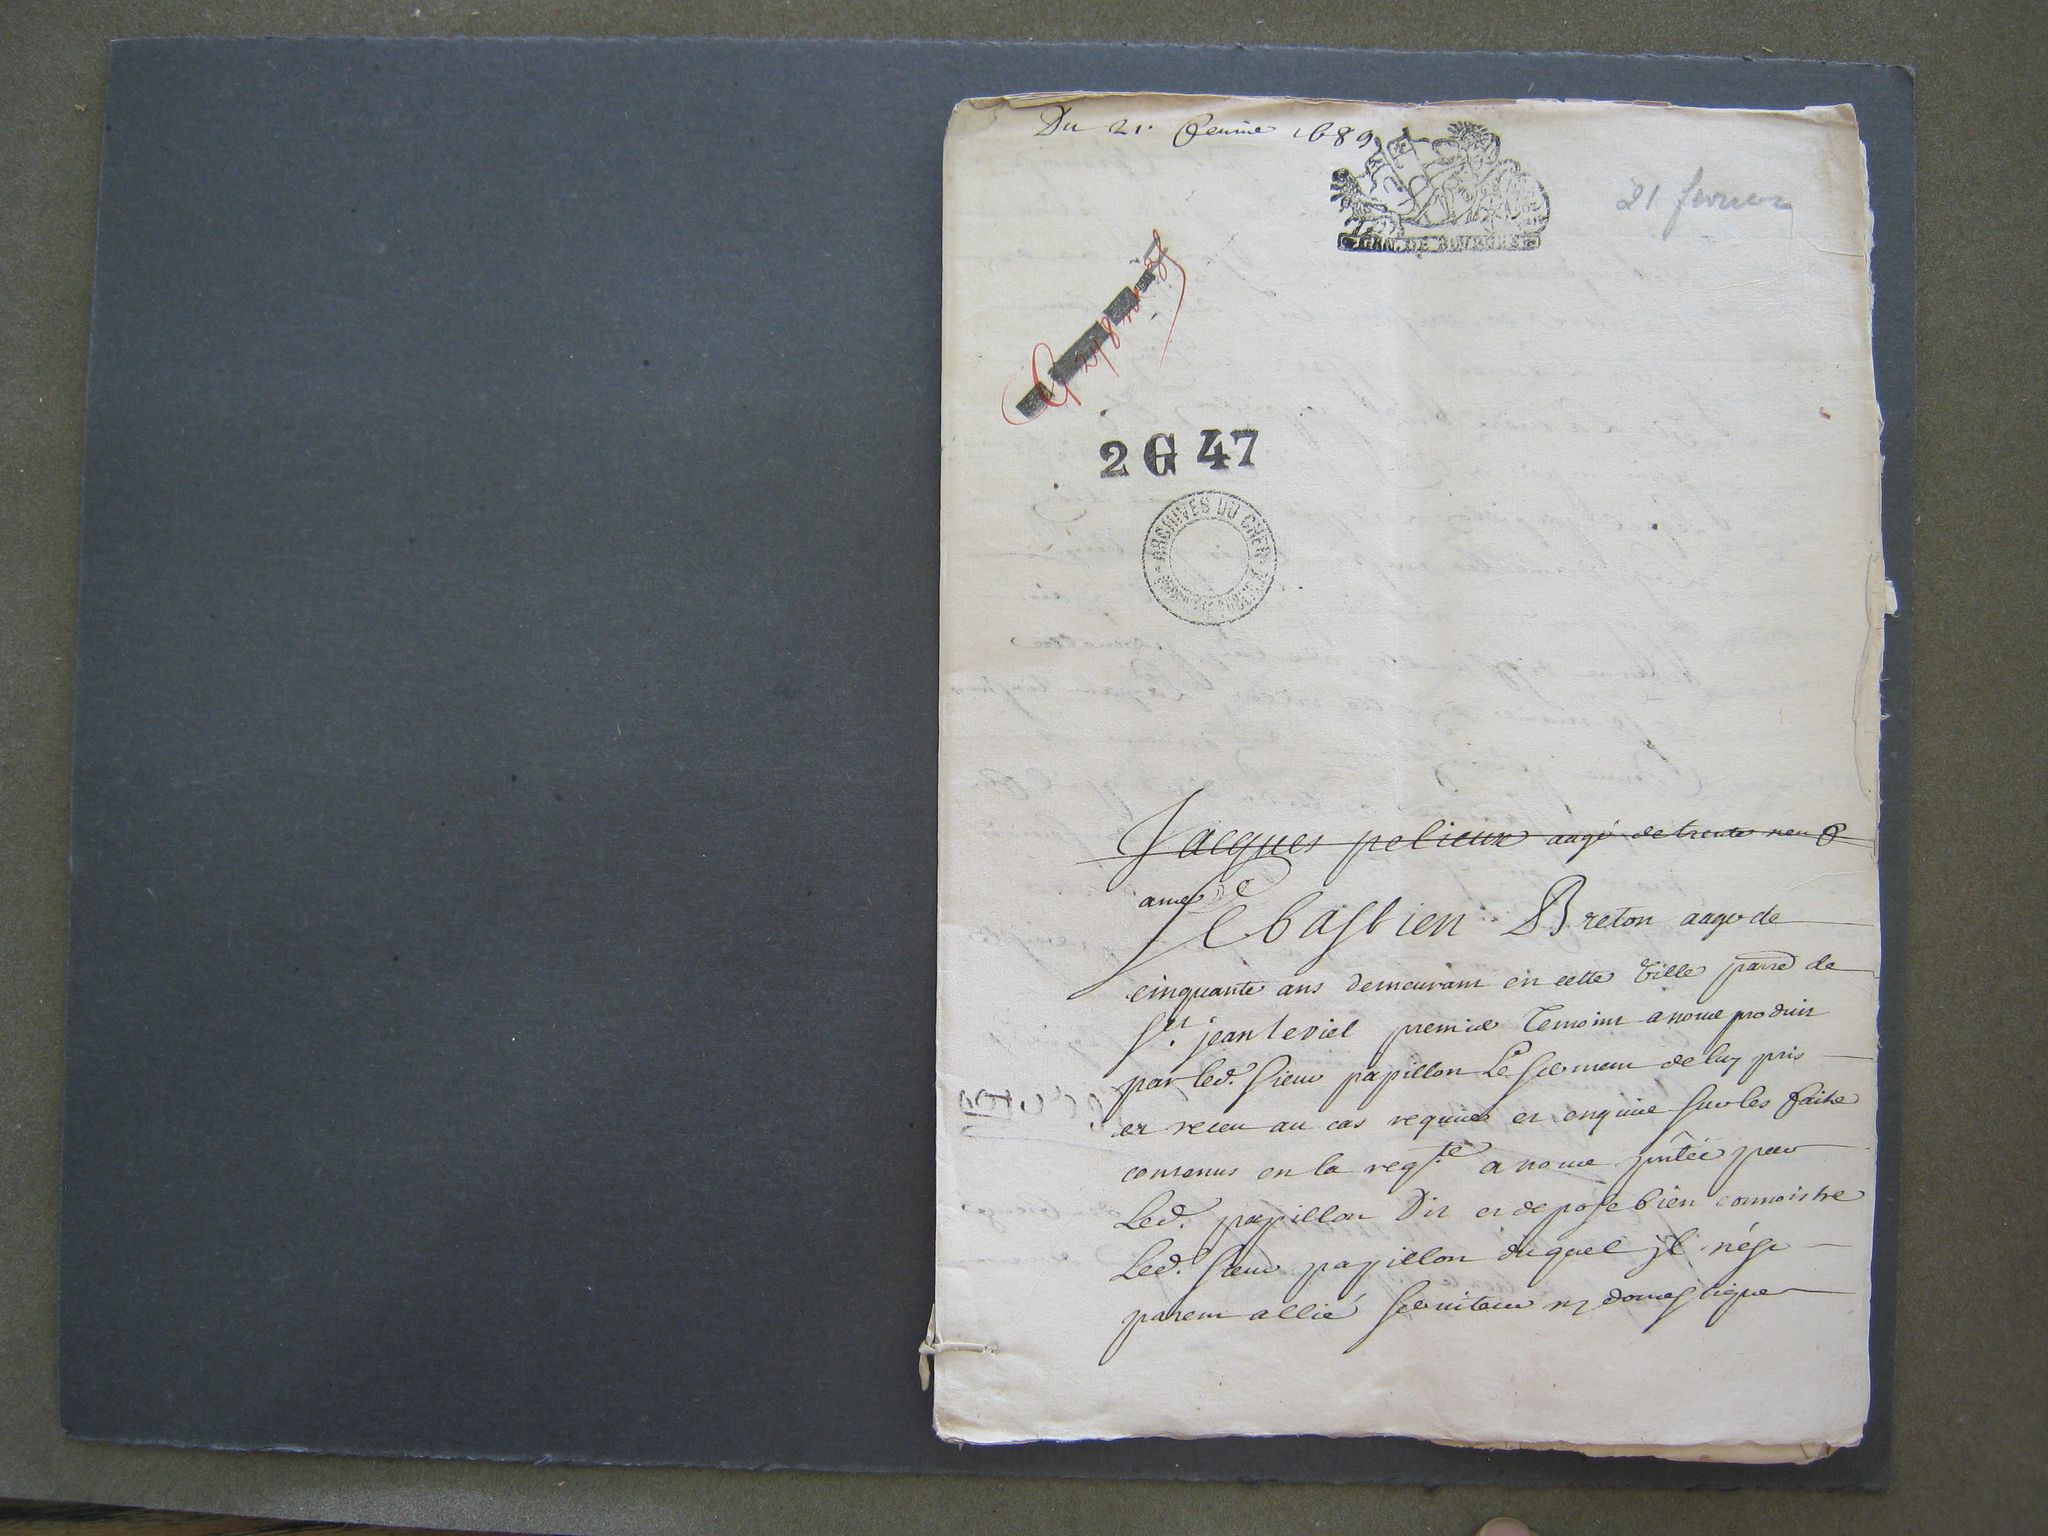 Du 21. feurier 1689
21 fevrier
GEN. DE BOURGES
2 G 47
ARCHIVES DU CHER
Jacques pelieux aagé de trente neuf
ans
Sebastien Breton aagé de
cinquante ans demeurant en cette ville parre de
St. jean le viel premier temoins a nous produit
par led. sieur papillon Le serment de luy pris
et receu au cas requis et enquis sur les faits
contenus en la reqte a nous pñtée par
Led. papillon Dit et depose bien connoistre
Led. sieur papillon duquel jl nést
parent allié seruiteur ny domestique